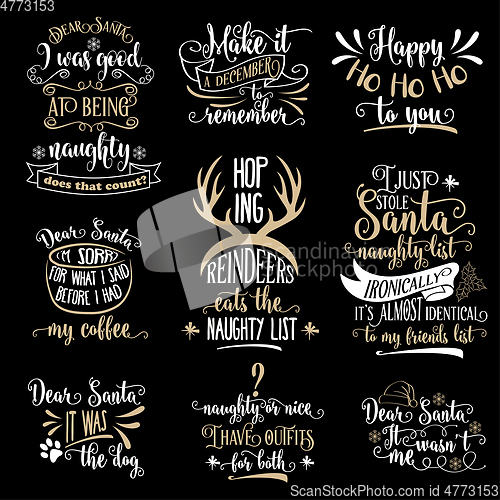 4773153
Dear Santa
I was good
AT BEING
naughty
does that count?
Make it
A DECEMBER
to
remember
Happy
HO HO HO
to you
HOP
ING
REINDEERs
eats the
NAUGHTY LIST
I JUST
STOLE
Santa
naughty list
IRONICALLY
IT'S ALMOST IDENTICAL
to my friends list
Dear Santa
I'M SORRY
FOR WHAT I SAID
BEFORE I HAD
my coffee
Dear Santa
IT WAS
the dog
?
naughty or nice
I HAVE OUTFITS
for both
Dear Santa
It wasn't
me
scandinavian
stockphoto
© Scandinavian StockPhoto
id 4773153